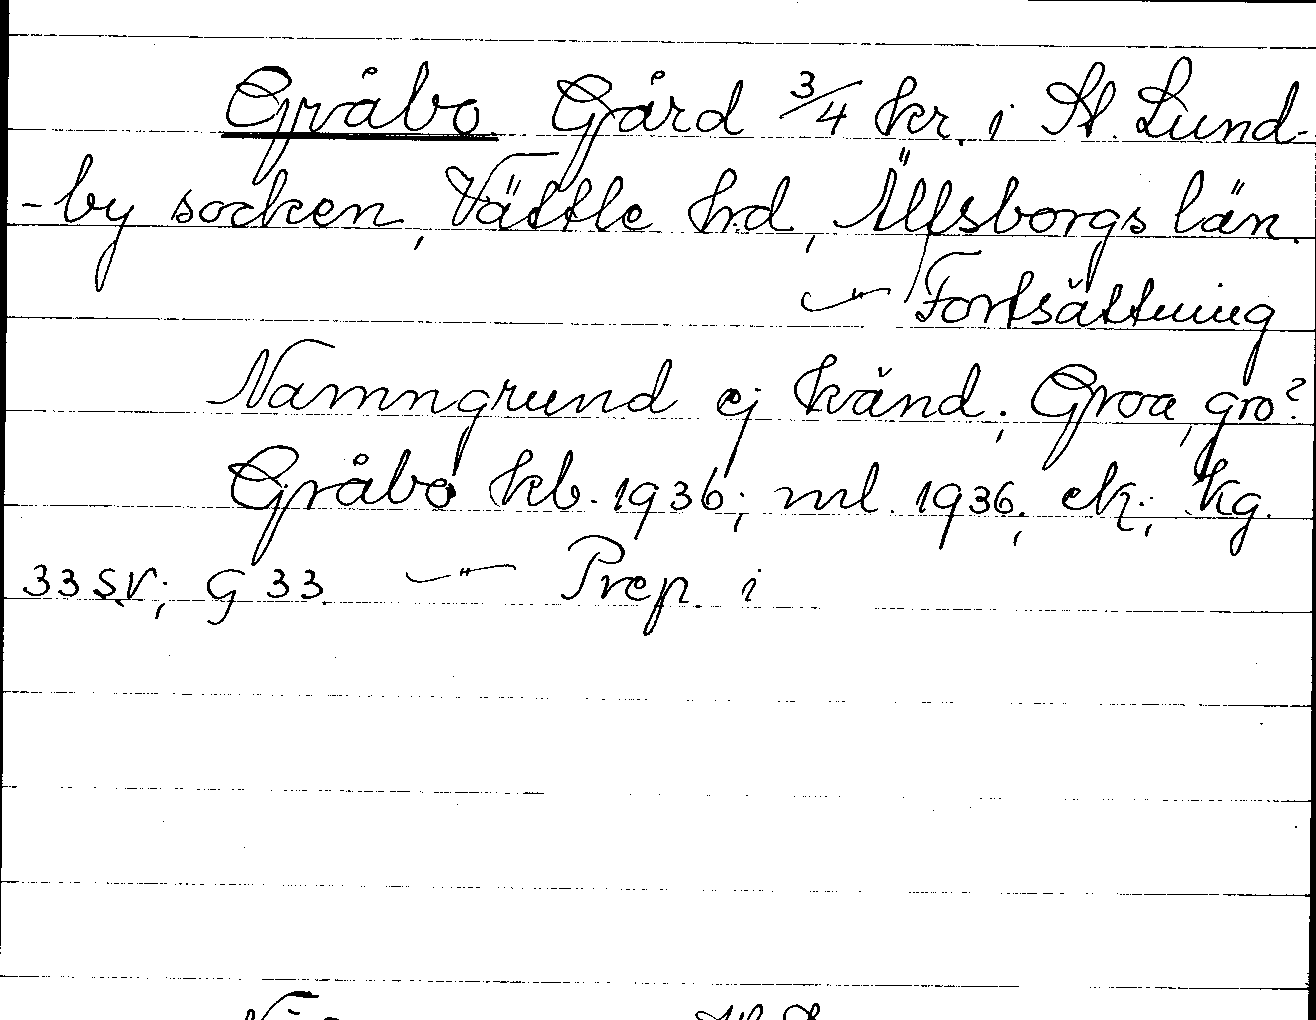 Gråbo Gård 3/4 kr. i St. Lund-
-by socken, Vättle hd, Älfsborgs län.
—"— Fortsättning
Namngrund ej känd; Groa, gro?
Gråbo kb. 1936; ml. 1936; ek; kg.
33 SV; G 33. —"— Prep. i